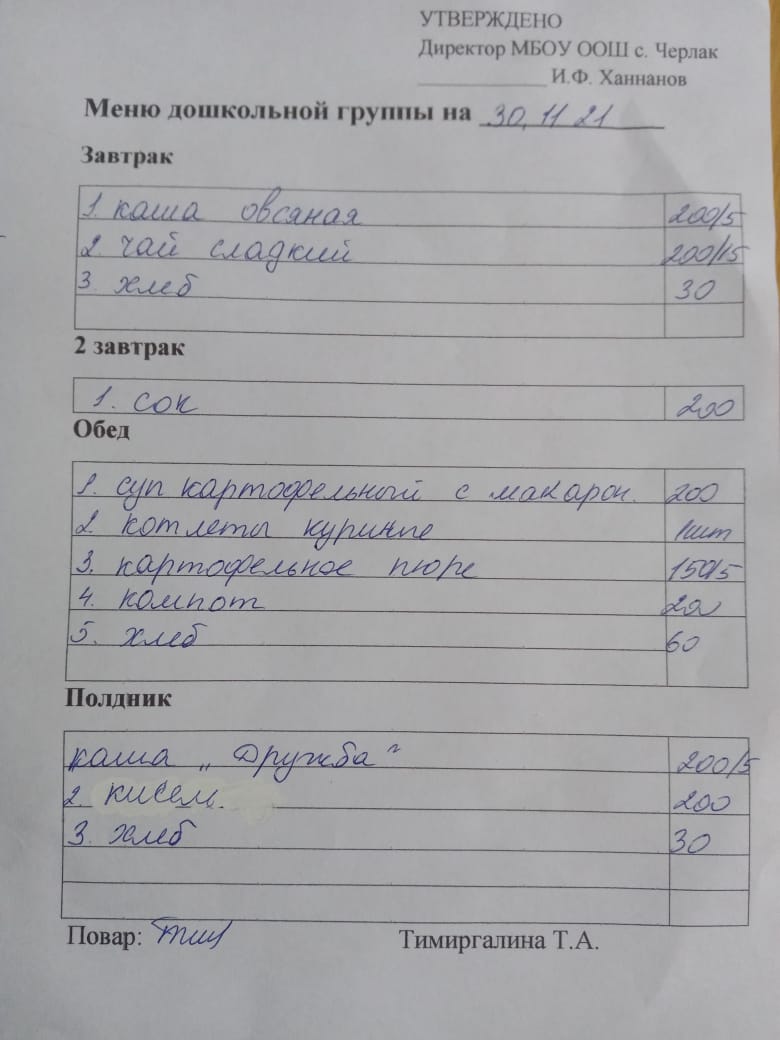 УТВЕРЖДЕНО
Директор МБОУ ООШ с. Черлак
____________ И.Ф. Ханнанов
Меню дошкольной группы на 30.11 21
Завтрак
1. каша овсяная 200/5
2. чай сладкий 200/15
3. хлеб 30
2 завтрак
1. сок 200
Обед
1. суп картофельный с макарон. 200
2. котлеты куриные 1шт
3. картофельное пюре 150/5
4. компот 200
5. хлеб 60
Полдник
каша „Дружба“ 200/5
2. кисель. 200
3. хлеб 30
Повар: Тимиргалина Т.А.